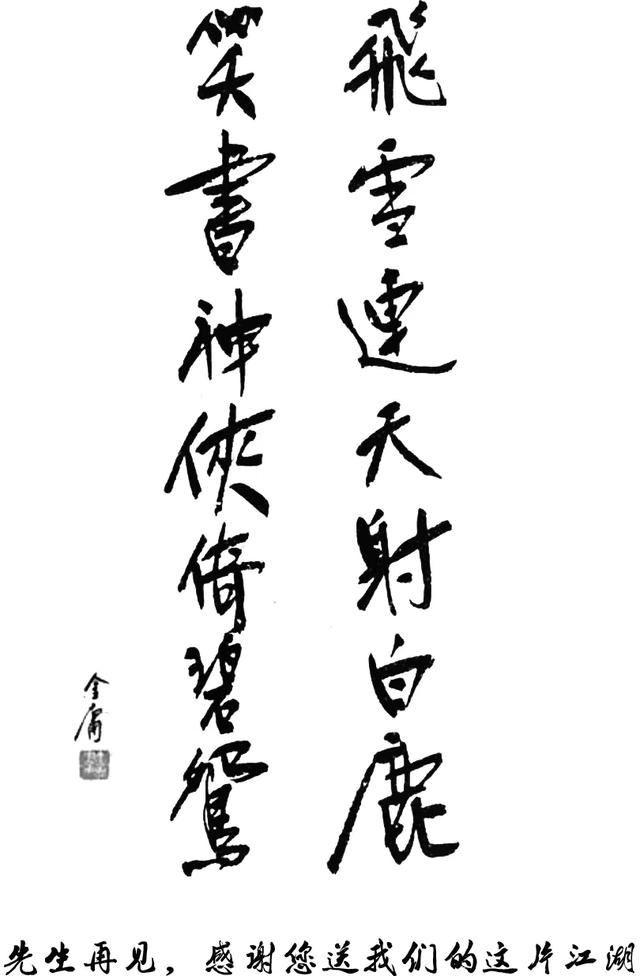 飛雪連天射白鹿
笑書神俠倚碧鴛
金庸
先生再见，感谢您送我们的这片江湖